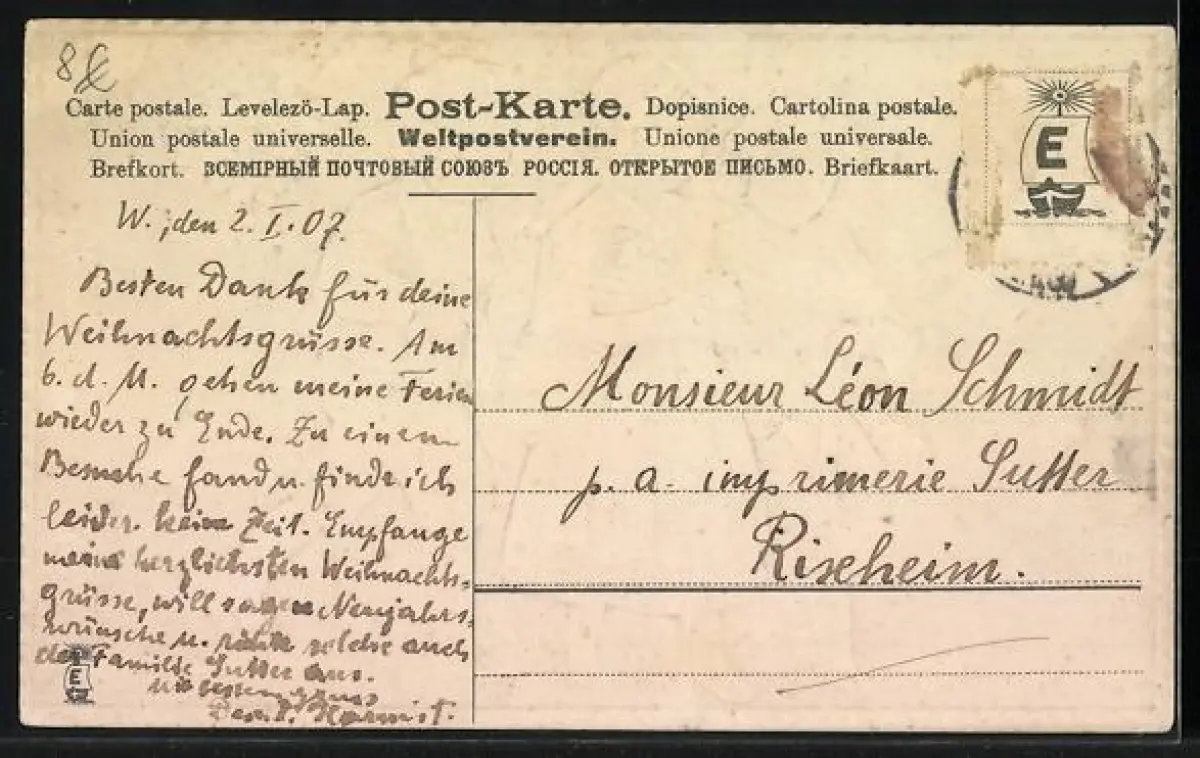 Carte postale. Levelező-Lap. Post-Karte. Dopisnice. Cartolina postale.
Union postale universelle. Weltpostverein. Unione postale universale.
Brefkort. ВСЕМІРНЫЙ ПОЧТОВЫЙ СОЮЗЪ РОССІЯ. ОТКРЫТОЕ ПИСЬМО. Briefkaart.
E
W., den 2. I. 07.
Besten Dank für deine
Weihnachtsgrüsse. Am
6. d. M. gehen meine Ferien
wieder zu Ende. Zu einem
Besuche fand u. finde ich
leider keine Zeit. Empfange
meine herzlichsten Weihnachts-
grüsse, will sagen Neujahrs-
wünsche u. solche auch
der Familie Sutter aus.
Monsieur Léon Schmidt
p. a. imprimerie Sutter
Rixheim.
E